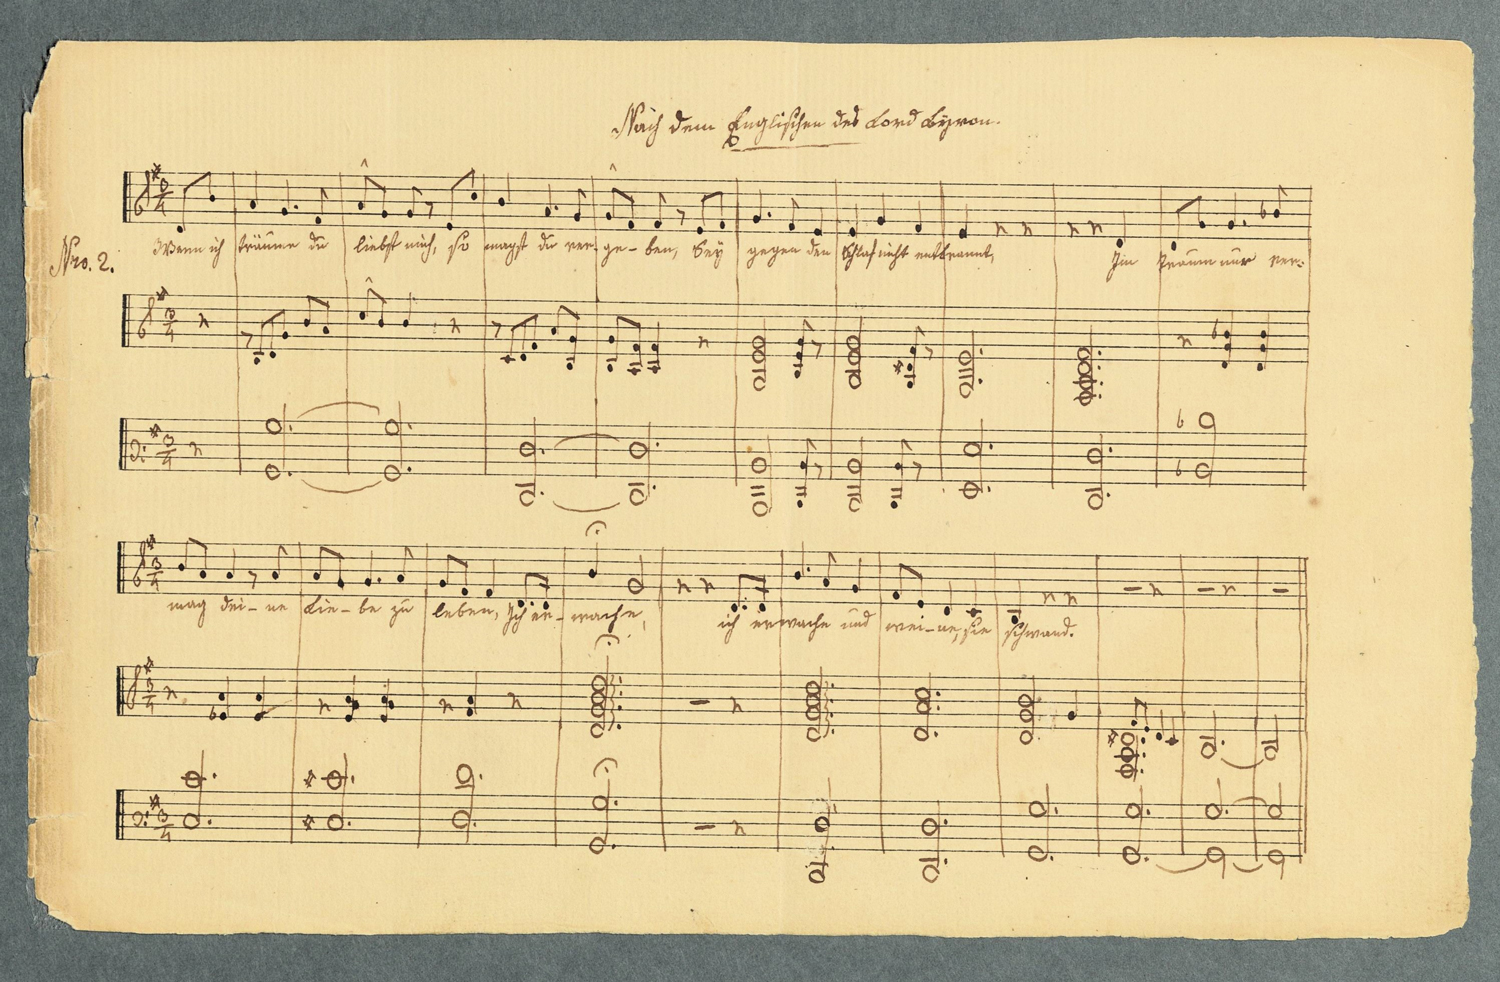 Nach dem Englischen des Lord Byron.
Nro. 2.
Wenn ich träume du liebst mich, so magst du ver-ge-ben, Sey gegen den Schlaf nicht entbrannt, Im Traum nur ver-
mag dei-ne Lie-be zu leben, Ich er-wache, ich erwache und wei-ne, sie schwand.